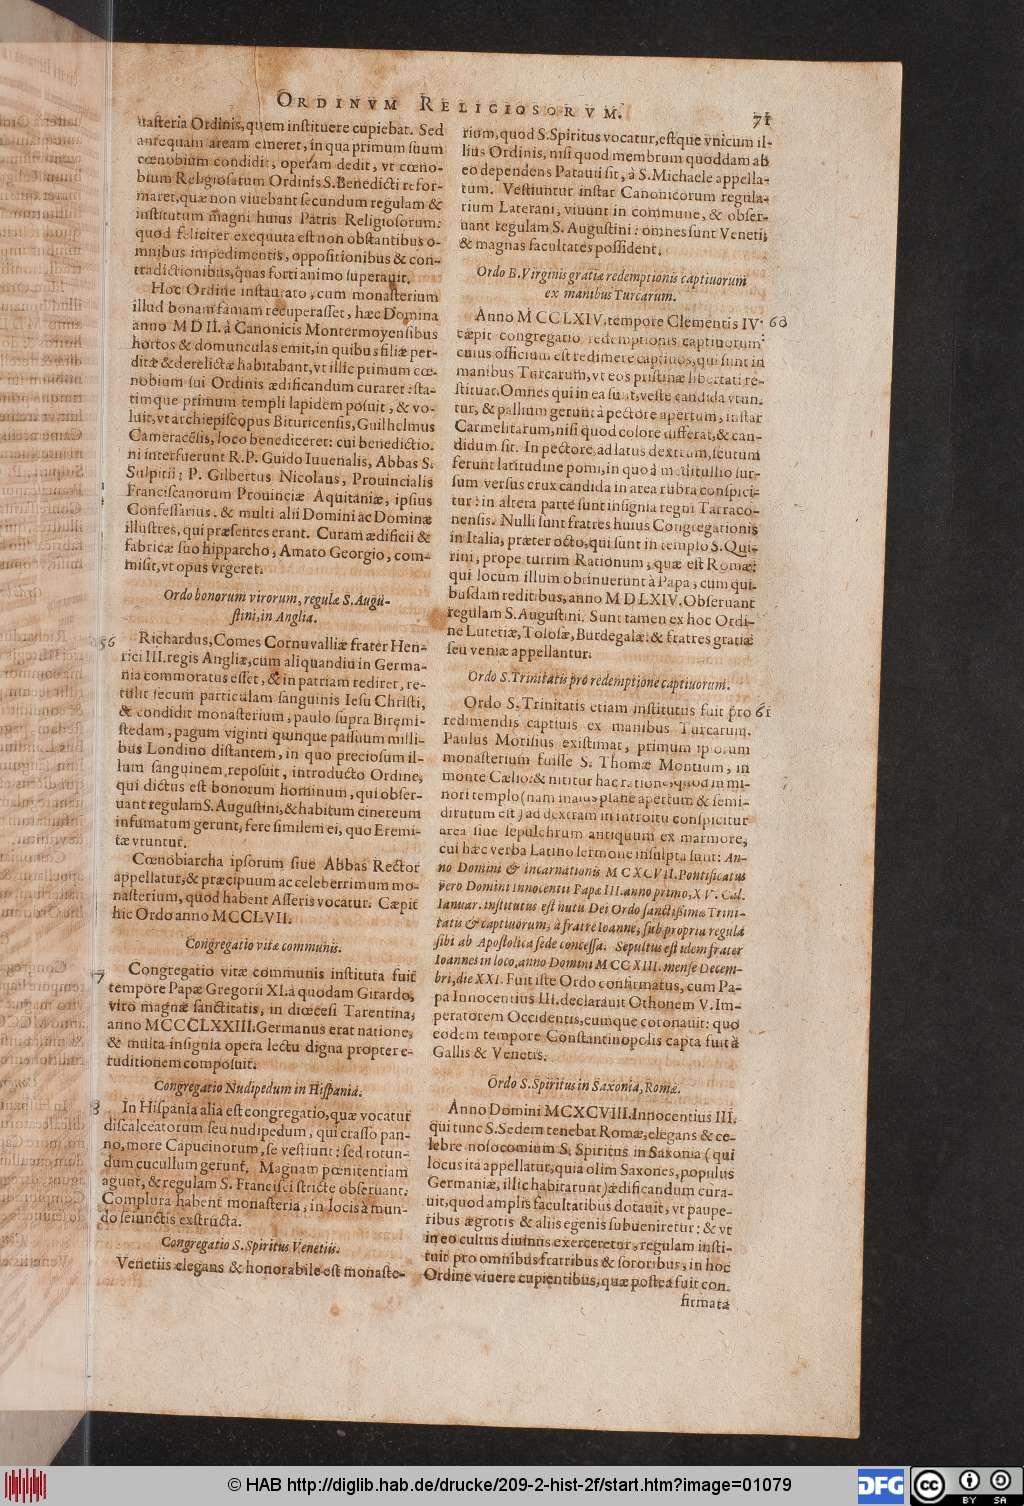 ORDINVM RELIGIOSORVM.
71
nasteria Ordinis, quem instituere cupiebat. Sed
antequam aream emeret, in qua primum suum
cœnobium condidit, operam dedit, vt cœno-
bium Religiosarum Ordinis S. Benedicti refor-
maret, quæ non viuebant secundum regulam &
institutum magni huius Patris Religiosorum:
quod feliciter exequuta est non obstantibus o-
mnibus impedimentis, oppositionibus & con-
tradictionibus, quas forti animo superauit.
Hoc Ordine instaurato, cum monasterium
illud bonam famam recuperasset, hæc Domina
anno MDII. à Canonicis Montermoyensibus
hortos & domunculas emit, in quibus filiæ per-
ditæ & derelictæ habitabant, vt illic primum cœ-
nobium sui Ordinis ædificandum curaret: sta-
timque primum templi lapidem posuit, & vo-
luit, vt archiepiscopus Bituricensis, Guilhelmus
Cameracēsis, loco benediceret: cui benedictio-
ni interfuerunt R.P. Guido Iuuenalis, Abbas S.
Sulpitii; P. Gilbertus Nicolaus, Prouincialis
Franciscanorum Prouinciæ Aquitaniæ, ipsius
Confessarius. & multi alii Domini ac Dominæ
illustres, qui præsentes erant. Curam ædificii &
fabricæ suo hipparcho, Amato Georgio, com-
misit, vt opus vrgeret.
Ordo bonorum virorum, regulæ S. Augu-
stini, in Anglia.
56 Richardus, Comes Cornuvalliæ frater Hen-
rici III. regis Angliæ, cùm aliquandiu in Germa-
nia commoratus esset, & in patriam rediret, re-
tulit secum particulam sanguinis Iesu Christi,
& condidit monasterium, paulo supra Biremi-
stedam, pagum viginti quinque passuum milli-
bus Londino distantem, in quo preciosum il-
lum sanguinem reposuit, introducto Ordine,
qui dictus est bonorum hominum, qui obser-
uant regulam S. Augustini, & habitum cinereum
infumatum gerunt, ferè similem ei, quo Eremi-
tæ vtuntur.
Cœnobiarcha ipsorum siue Abbas Rector
appellatur, & præcipuum ac celeberrimum mo-
nasterium, quod habent Asseris vocatur. Cæpit
hic Ordo anno MCCLVII.
Congregatio vitæ communis.
7 Congregatio vitæ communis instituta fuit
tempore Papæ Gregorii XI. à quodam Girardo,
viro magnæ sanctitatis, in diœcesi Tarentina,
anno MCCCLXXIII. Germanus erat natione,
& multa insignia opera lectu digna propter e-
ruditionem composuit.
Congregatio Nudipedum in Hispania.
8 In Hispania alia est congregatio, quæ vocatur
discalceatorum seu nudipedum, qui crasso pan-
no, more Capucinorum, se vestiunt: sed rotun-
dum cucullum gerunt. Magnam pœnitentiam
agunt, & regulam S. Francisci strictè obseruant.
Complura habent monasteria, in locis à mun-
do seiunctis exstructa.
Congregatio S. Spiritus Venetiis.
Venetiis elegans & honorabile est monaste-
rium, quod S. Spiritus vocatur, estque vnicum il-
lius Ordinis, nisi quod membrum quoddam ab
eo dependens Patauii sit, à S. Michaele appella-
tum. Vestiuntur instar Canonicorum regula-
rium Laterani, viuunt in commune, & obser-
uant regulam S. Augustini: omnes sunt Veneti,
& magnas facultates possident.
Ordo B. Virginis gratiæ redemptionis captiuorum
ex manibus Turcarum.
Anno MCCLXIV. tempore Clementis IV. 60
cæpit congregatio redemptionis captiuorum
cuius officium est redimere captiuos, qui sunt in
manibus Turcarum, vt eos pristinæ libertati re-
stituat. Omnes qui in ea sunt, veste candida vtun-
tur, & pallium gerunt à pectore apertum, instar
Carmelitarum, nisi quod colore differat, & can-
didum sit. In pectore, ad latus dextrum, scutum
ferunt latitudine pomi, in quo à meditullio sur-
sum versus crux candida in area rubra conspici-
tur: in altera parte sunt insignia regni Tarraco-
nensis. Nulli sunt fratres huius Congregationis
in Italia, præter octo, qui sunt in templo S. Qui-
rini, prope turrim Rationum, quæ est Romæ:
qui locum illum obtinuerunt à Papa, cum qui-
busdam reditibus, anno MDLXIV. Obseruant
regulam S. Augustini. Sunt tamen ex hoc Ordi-
ne Lutetiæ, Tolosæ, Burdegalæ: & fratres gratiæ
seu veniæ appellantur.
Ordo S. Trinitatis pro redemptione captiuorum.
Ordo S. Trinitatis etiam institutus fuit pro 61
redimendis captiuis ex manibus Turcarum.
Paulus Morisius existimat, primum ipsorum
monasterium fuisse S. Thomæ Montium, in
monte Cælio: & nititur hac ratione, quod in mi-
nori templo (nam maius planè apertum & semi-
dirutum est) ad dextram in introitu conspicitur
area siue sepulchrum antiquum ex marmore,
cui hæc verba Latino sermone insculpta sunt: An-
no Domini & incarnationis MCXCVII. Pontificatus
vero Domini Innocentii Papæ III. anno primo, XV. Cal.
Ianuar. institutus est nutu Dei Ordo sanctissimæ Trini-
tatis & captiuorum, à fratre Ioanne, sub propria regula
sibi ab Apostolica sede concessa. Sepultus est idem frater
Ioannes in loco, anno Domini MCCXIII. mense Decem-
bri, die XXI. Fuit iste Ordo confirmatus, cum Pa-
pa Innocentius III. declarauit Othonem V. Im-
peratorem Occidentis, eumque coronauit: quo
eodem tempore Constantinopolis capta fuit à
Gallis & Venetis.
Ordo S. Spiritus in Saxonia, Romæ.
Anno Domini MCXCVIII. Innocentius III.
qui tunc S. Sedem tenebat Romæ, elegans & ce-
lebre nosocomium S. Spiritus in Saxonia (qui
locus ita appellatur, quia olim Saxones, populus
Germaniæ, illic habitarunt) ædificandum cura-
uit, quod amplis facultatibus dotauit, vt paupe-
ribus ægrotis & aliis egenis subueniretur: & vt
in eo cultus diuinus exerceretur, regulam insti-
tuit pro omnibus fratribus & sororibus, in hoc
Ordine viuere cupientibus, quæ postea fuit con-
firmata
© HAB http://diglib.hab.de/drucke/209-2-hist-2f/start.htm?image=01079
DFG
cc BY SA